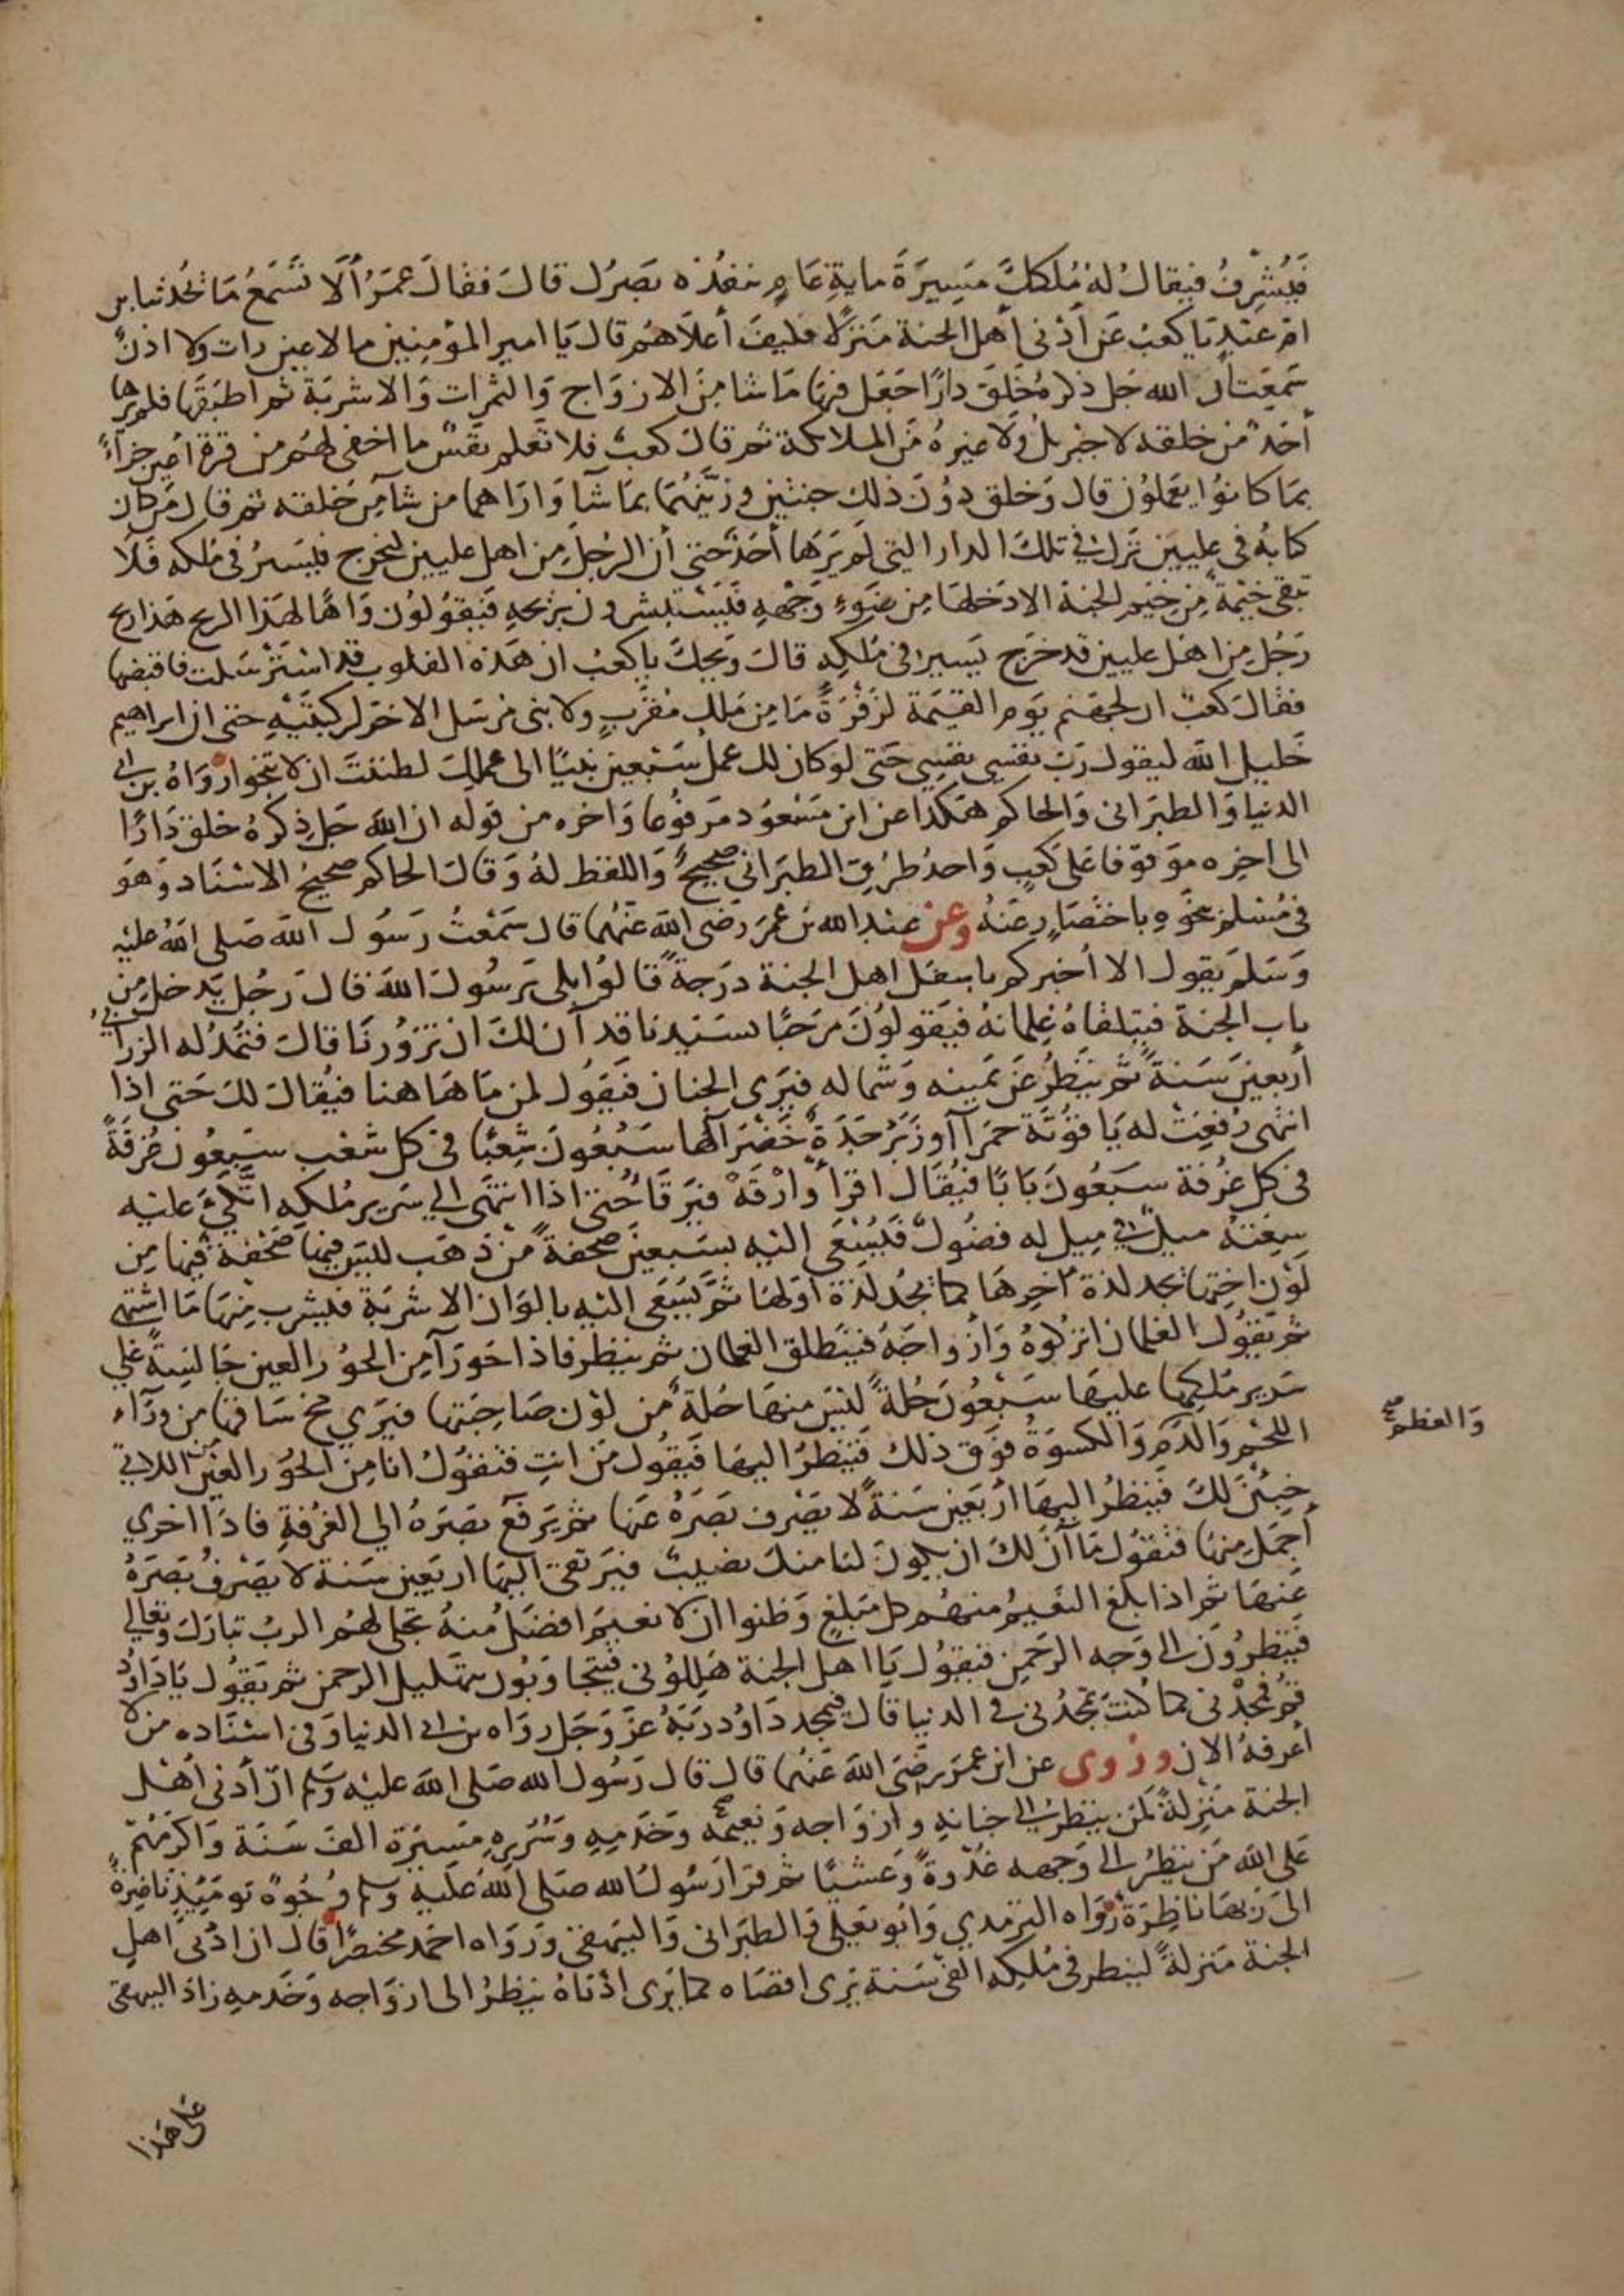 فيُشْرِفُ فيقالُ لهُ مُلككَ مَسِيرَةَ مايةِ عَامٍ ينفذه بَصَرُك قالَ فقالَ عُمَرُ أَلَا تَسْمَعُ مَا يُحَدثنا ابن
ام عبدٍ يا كعبُ عَن أَدْنى أهل الجنة مَنزلًا فكيفَ أعلاهُم قال يَا امير المؤمِنِين ما لا عين رات ولا اذنٌ
سَمِعَت ان الله جَل ذكره خَلَقَ دارًا جَعَل فيهَا مَا شا مِنَ الازوَاج وَالثمرات وَالاشربَة ثم اطبَقَها فلم يرها
أحَدٌ من خلقه لا جبريلُ ولا غيرهُ مِن الملائكة ثم قال كعبٌ فلا تَعلم نَفسٌ ما اخفى لهُم من قرة أعين جزآءً
بمَا كانوُا يعملوُن قال وَخلق دوُنَ ذلك جنتين وزيَّنهُمَا بمَا شآ وَارَاهما من شآ مِن خلقه ثم قال مَن كان
كتابهُ في عِليين نزل في تلكَ الدار التي لم يَرَها أحَدٌ حتى أن الرجُلَ مِن اهل عليين ليخرج فيسيرُ في مُلكه فَلَا
تبقى خَيْمَةٌ مِن خِيَم الجنة الا دَخلهَا مِن ضَوءِ وَجْههِ فَيَسْتبشرون بريحهِ فَيقوُلوُن وَاهًا لهَذا الريح هَذا ريح
رَجُل مِن اهل عليين قد خرَج يَسير في مُلكِهِ قالَ وَيحكَ يا كعبُ ان هَذه القلوب قد استرْسَلت فاقبضها
فقال كعبٌ ان لجهَنم يوَم القيمَة لزَفْرَةً مَا مِن مَلكٍ مُقرَّبٍ ولا نبى مُرسَل الا خرّ لركبتَيْهِ حتى ان ابراهيم
خَليل الله ليقول رَبِّ نفسي نفسِي حَتى لو كان لك عملُ سَبْعين نبيًا الى عملكَ لظننتَ ان لا تنجوا رَوَاهُ بن ابي
الدنيا وَالطبرَانى وَالحاكم هَكذا عن ابن مَسْعُود مَرفوُعا وَاخره من قوله ان الله جَل ذِكرهُ خلق دَارًا
الى اخِره موَقوفا عَلى كعبٍ وَاحدُ طرُق الطبرَانى صحيحٌ وَاللفظ لهُ وَقالَ الحاكم صحيحُ الاسْنَاد وَهوَ
فى مُسْلم بنحَوِهِ باختصَارٍ عَنهُ وعن عبد الله بن عمَرَ رَضى الله عَنهُمَا قال سَمْعتُ رَسُول الله صَلى الله عليْه
وَسَلم يقول الا أُخبركم باسفل اهل الجنة درَجةً قالوُا بلى يَرسُولَ الله قال رَجُل يَدخل مِن
باب الجنة فيتلقاهُ غِلمانهُ فيقولوُنَ مَرحَبًا بسَيدنا قد آن لكَ ان تزوُرنَا قالَ فتمَدُ له الزرابيُّ
أربعينَ سَنةً ثم ينظُر عَن يَمينه وَشماله فيَرى الجنان فيقوُل لمن مَا هَا هنا فيُقال لكَ حَتى اذا
انتهى رُفعَتْ له يَاقوُتة حَمرآ أو زَبَرْجَدَةٌ خَضرآ لها سَبْعُونَ شِعْبًا فى كل شعْب سَبعُون غُرفةً
فى كل غرُفة سَبعُونَ بَابًا فيُقَال اقرأ وَارْقَهْ فيَرقَا حتى اذا انتهَى الي سَرير مُلكهِ اتَّكَئَ عليْه
سِعَتهُ ميلٌ في مِيل له فضُولٌ فَيُسْعَى اليْه بسَبعينَ صحفةً من ذهَب ليسَ فيهَا صَحْفَة فيها مِن
لَوْن اختها يجد لذة اخِرهَا كما يجُد لذة أوّلهَا ثم يُسْعَى اليْه بالوَان الاشربَة فيشرب مِنهَا مَا اشتهى
ثم يَقوُل الغلمان اتركوهُ وَأزواجَهُ فيَنطلق الغلمان ثم ينظر فاذا حَورآ مِن الحوُر العين جَالسَةً على
سَرير مُلكِهَا عليهَا سَبْعُونَ حُلةً ليْسَ منهَا حُلةٌ من لوْن صَاحِبَتها فيَرَي مخ سَاقها من ورآء
اللحم وَالدَّم وَالكسوَةُ فوَق ذلك فيَنظرُ اليهَا فَيقُول مَن انتِ فتقوُل انا مِنَ الحوُر العِين اللاتي
خبئنَ لكَ فيَنظرُ اليهَا ارْبَعين سَنةً لا يَصْرف بَصَرَهُ عَنها ثم يَرفع بَصَرَهُ الي الغرُفةِ فاذا اخري
أجمَل مِنهَا فتقوُل مَا آنَ لكَ ان يكونَ لنا منكَ نصيبٌ فيَرتقى اليهَا اربَعين سَنة لا يَصْرفُ بَصَرَهُ
عَنهَا ثم اذا بلغ النَّعيمُ منهُم كل مَبلغٍ وَظنوا ان لا نعيمَ افضَلُ منهُ تجلى لهُم الربُ تبارَك وَتعَالي
فيَنظروُنَ الى وَجه الرَحمن فيقوُل يَا اهل الجنة هَلِلوُنى فيتجاوَبوُن بتهْليل الرحمن ثم يَقوُل يَا دَاوُدُ
قمُ فمَجدْني كما كُنتَ تمجّدُني في الدنيا قالَ فيُمجد دَاوُد رَبَّهُ عزَّ وَجَل رَواه بن ابي الدنيا وَفى اسْنَاده من لا
أعرفهُ الان وَرُوى عن ابن عمرَ رضَيَ الله عَنهُما قال قال رَسُول الله صَلى الله عليْه وسلم انّ أدنى أهْل
الجنة مَنْزلةً لمَن ينظرُ الى جنانهِ وازوَاجه وَنعيمه وَخَدَمِهِ وَسُرُرهِ مَسيرَة الف سَنَة وَاكرَمَهُم
عَلى الله مَن ينظرُ الى وَجهه غُدْوةً وَعَشيًا ثم قرَا رَسُولُ الله صَلى اللهُ عَليْهِ وسلم وُجُوهٌ يَوْمَئِذٍ نَاضِرَةٌ
الىَ رَبهَا نَاظِرَةٌ رَوَاه الترمذي وَابو يَعلى وَالطبرَانى وَالبيهقى وَرَوَاه احَمد مختصَرًا قال ان ادْنى اهل
الجنة مَنزلةً لينظر فى مُلكِه الفىْ سَنة يَرى اقصَاه كما يَرى ادْناهُ ينظرُ الى ازوَاجه وَخَدمهِ زادَ البيهقى
وَالعظم صح
على هَذا